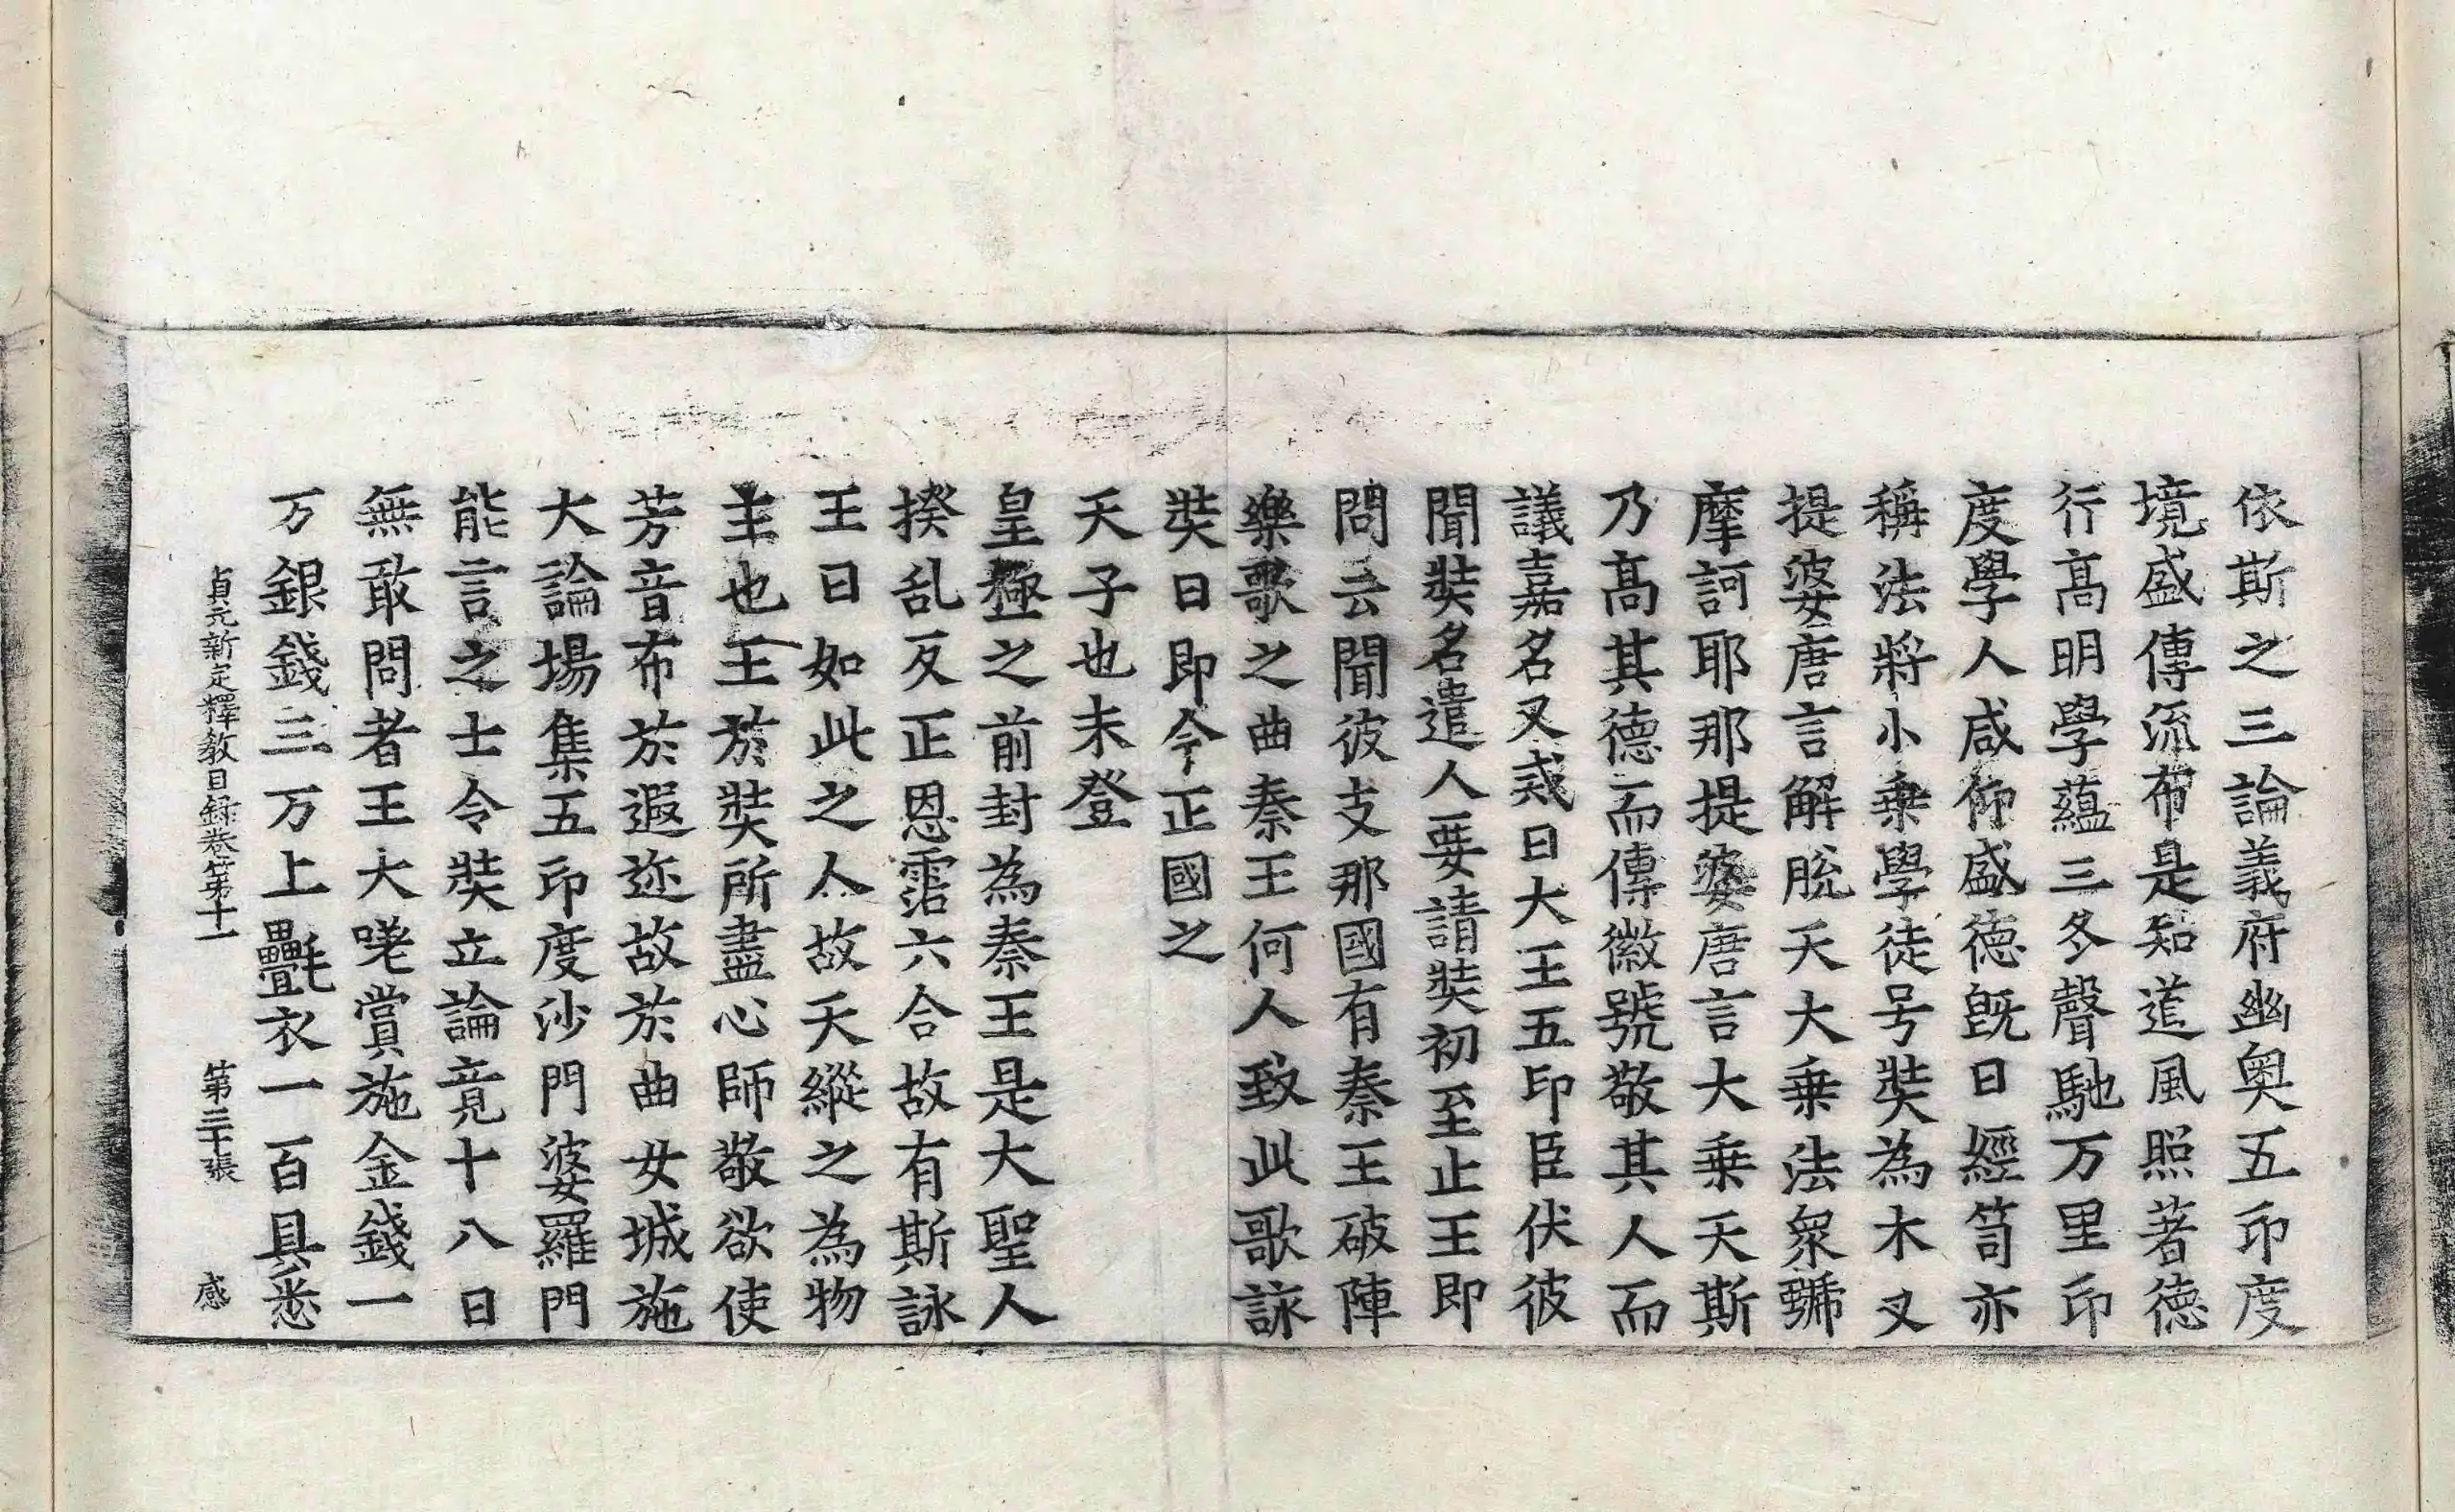 依斯之三論義府幽奧五印度
境盛傳流布是知道風照著德
行高明學蘊三冬聲馳万里印
度學人咸仰盛德旣曰經笥亦
稱法將小乗學徒号奘為木叉
提婆唐言解脫天大乗法衆號
摩訶耶那提婆唐言大乗天斯
乃高其德而傳徽號敬其人而
議嘉名又戒日大王五印臣伏彼
聞奘名遣人要請奘初至止王即
問云聞彼支那國有秦王破陣
樂歌之曲秦王何人致此歌詠
奘曰即今正國之
天子也未登
皇極之前封為秦王是大聖人
揆乱反正恩霑六合故有斯詠
王曰如此之人故天縱之為物
主也王於奘所盡心師敬欲使
芳音布於遐迩故於曲女城施
大論場集五印度沙門婆羅門
能言之士令奘立論竟十八日
無敢問者王大嗟賞施金錢一
万銀錢三万上㲲衣一百具悉
貞元新定釋教目錄卷第十一 第三十張 感